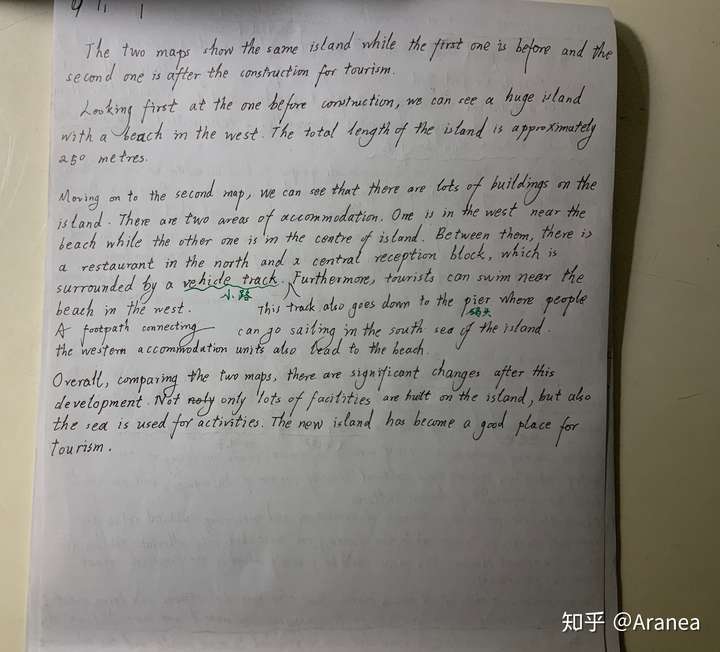 The two maps show the same island while the first one is before and the
second one is after the construction for tourism.
Looking first at the one before construction, we can see a huge island
with a beach in the west. The total length of the island is approximately
250 metres.
Moving on to the second map, we can see that there are lots of buildings on the
island. There are two areas of accommodation. One is in the west near the
beach while the other one is in the centre of island. Between them, there is
a restaurant in the north and a central reception block, which is
surrounded by a vehicle track. Furthermore, tourists can swim near the
小路
beach in the west. This track also goes down to the pier where people
码头
A footpath connecting can go sailing in the south sea of the island.
the western accommodation units also lead to the beach.
Overall, comparing the two maps, there are significant changes after this
development. Not only lots of facilities are built on the island, but also
the sea is used for activities. The new island has become a good place for
tourism.
知乎 @Aranea